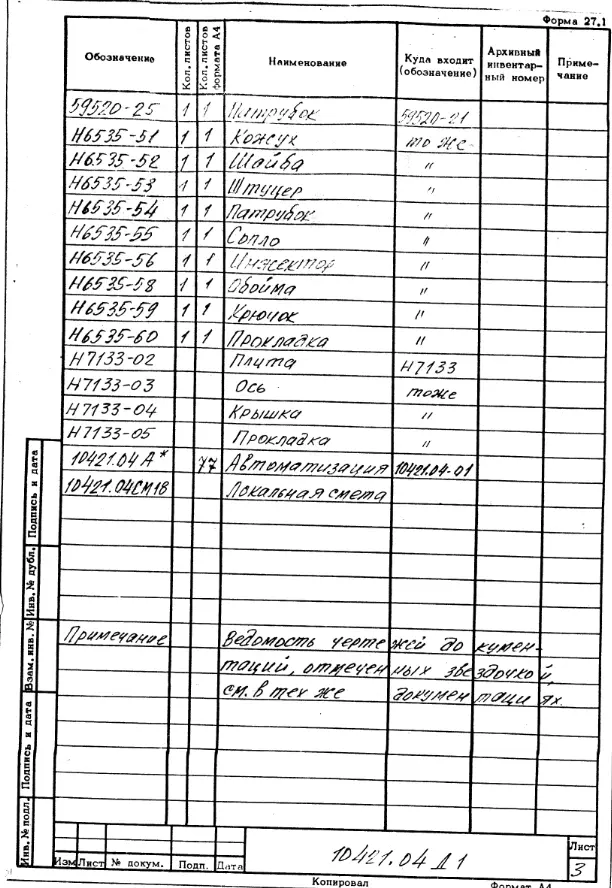 Форма 27.1
Обозначение Кол. листов Кол. листов формата А4 Наименование Куда входит (обозначение) Архивный инвентарный номер Примечание
59520-25 1 1 Патрубок 59520-21
Н6535-51 1 1 Кожух то же
Н6535-52 1 1 Шайба "
Н6535-53 1 1 Штуцер "
Н6535-54 1 1 Патрубок "
Н6535-55 1 1 Сопло "
Н6535-56 1 1 Инжектор "
Н6535-58 1 1 Обойма "
Н6535-59 1 1 Крючок "
Н6535-60 1 1 Прокладка "
Н7133-02 Плита Н7133
Н7133-03 Ось тоже
Н7133-04 Крышка "
Н7133-05 Прокладка "
10421.04 А* 77 Автоматизация 10421.04-01
10421.04СМ18 Локальная смета
Примечание Ведомость чертежей докумен-
таций, отмеченных звездочкой,
см. в тех же документациях.
Подпись и дата
Инв. № дубл.
Взам. инв. №
Подпись и дата
Инв. № подл.
Изм Лист № докум. Подп. Дата
10421.04 Д1
Лист
3
Копировал Формат А4